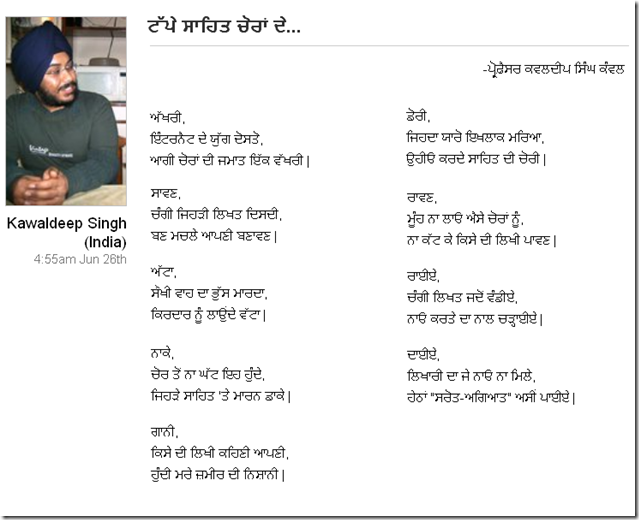 ਟੱਪੇ ਸਾਹਿਤ ਚੋਰਾਂ ਦੇ...
-ਪ੍ਰੋਫ਼ੈਸਰ ਕਵਲਦੀਪ ਸਿੰਘ ਕੰਵਲ
Kawaldeep Singh
(India)
4:55am Jun 26th
ਅੱਖਰੀ,
ਇੰਟਰਨੈਟ ਦੇ ਯੁੱਗ ਦੋਸਤੋ,
ਆਗੀ ਚੋਰਾਂ ਦੀ ਜਮਾਤ ਇੱਕ ਵੱਖਰੀ|
ਸਾਵਣ,
ਚੰਗੀ ਜਿਹੜੀ ਲਿਖਤ ਦਿਸਦੀ,
ਬਣ ਮਚਲੇ ਆਪਣੀ ਬਣਾਵਣ|
ਅੱਟਾ,
ਸੋਖੀ ਵਾਹ ਦਾ ਭੁੱਸ ਮਾਰਦਾ,
ਕਿਰਦਾਰ ਨੂੰ ਲਾਉਂਦੇ ਵੱਟਾ|
ਨਾਕੇ,
ਚੋਰ ਤੋਂ ਨਾ ਘੱਟ ਇਹ ਹੁੰਦੇ,
ਜਿਹੜੇ ਸਾਹਿਤ 'ਤੇ ਮਾਰਨ ਡਾਕੇ|
ਗਾਨੀ,
ਕਿਸੇ ਦੀ ਲਿਖੀ ਕਹਿਣੀ ਆਪਣੀ,
ਹੁੰਦੀ ਮਰੇ ਜ਼ਮੀਰ ਦੀ ਨਿਸ਼ਾਨੀ|
ਡੋਰੀ,
ਜਿਹਦਾ ਯਾਰੋ ਇਖਲਾਕ ਮਰਿਆ,
ਉਹੀਓ ਕਰਦੇ ਸਾਹਿਤ ਦੀ ਚੋਰੀ|
ਰਾਵਣ,
ਮੂੰਹ ਨਾ ਲਾਓ ਐਸੇ ਚੋਰਾਂ ਨੂੰ,
ਨਾ ਕੱਟ ਕੇ ਕਿਸੇ ਦੀ ਲਿਖੀ ਪਾਵਣ|
ਰਾਈਏ,
ਚੰਗੀ ਲਿਖਤ ਜਦੋਂ ਵੰਡੀਏ,
ਨਾਓ ਕਰਤੇ ਦਾ ਨਾਲ ਚੜ੍ਹਾਈਏ|
ਦਾਈਏ,
ਲਿਖਾਰੀ ਦਾ ਜੇ ਨਾਓ ਨਾ ਮਿਲੇ,
ਹੇਠਾਂ "ਸਰੋਤ-ਅਗਿਆਤ" ਅਸੀਂ ਪਾਈਏ|